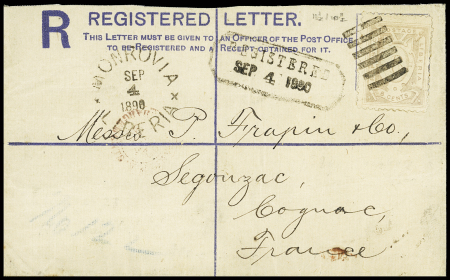 R REGISTERED LETTER.
THIS LETTER MUST BE GIVEN TO AN OFFICER OF THE POST OFFICE
TO BE REGISTERED AND A RECEIPT OBTAINED FOR IT.
MONROVIA
SEP
4
1890
LIBERIA
REGISTERED
SEP 4 1890
Messrs P. Frapin & Co.,
Segonzac,
Cognac,
France